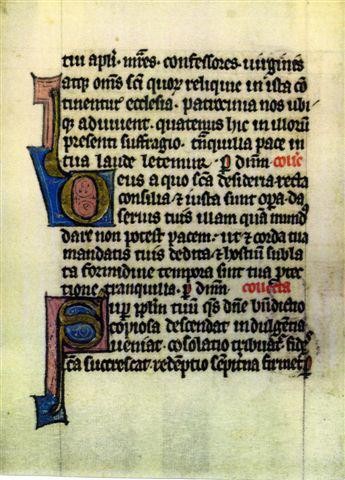 tui apli. mres. confessores. uirgines
atq; oms sci quor reliquie in ista co
tinentur ecclesia. patrocinia nos ubi
q; adiuuent. quatenus hic in illorum
presenti suffragio. tnquilla pace in
tua laude letemur. p dnm. coll'c
Deus a quo sca desideria recta
consilia & iusta sunt opera. da
seruis tuis illam quā mund
dare non potest pacem. ut & corda tua
mandatis tuis dedita & hostium subla
ta formidine tempora sint tua ptec
tione tranquilla. p dnm. collecta
Sup pplm tuū qs dne bndictio
copiosa descendat indulgentia
ueniat. cosolatio tribuat. fides
sca succrescat. redēptio sepitna firmet. p